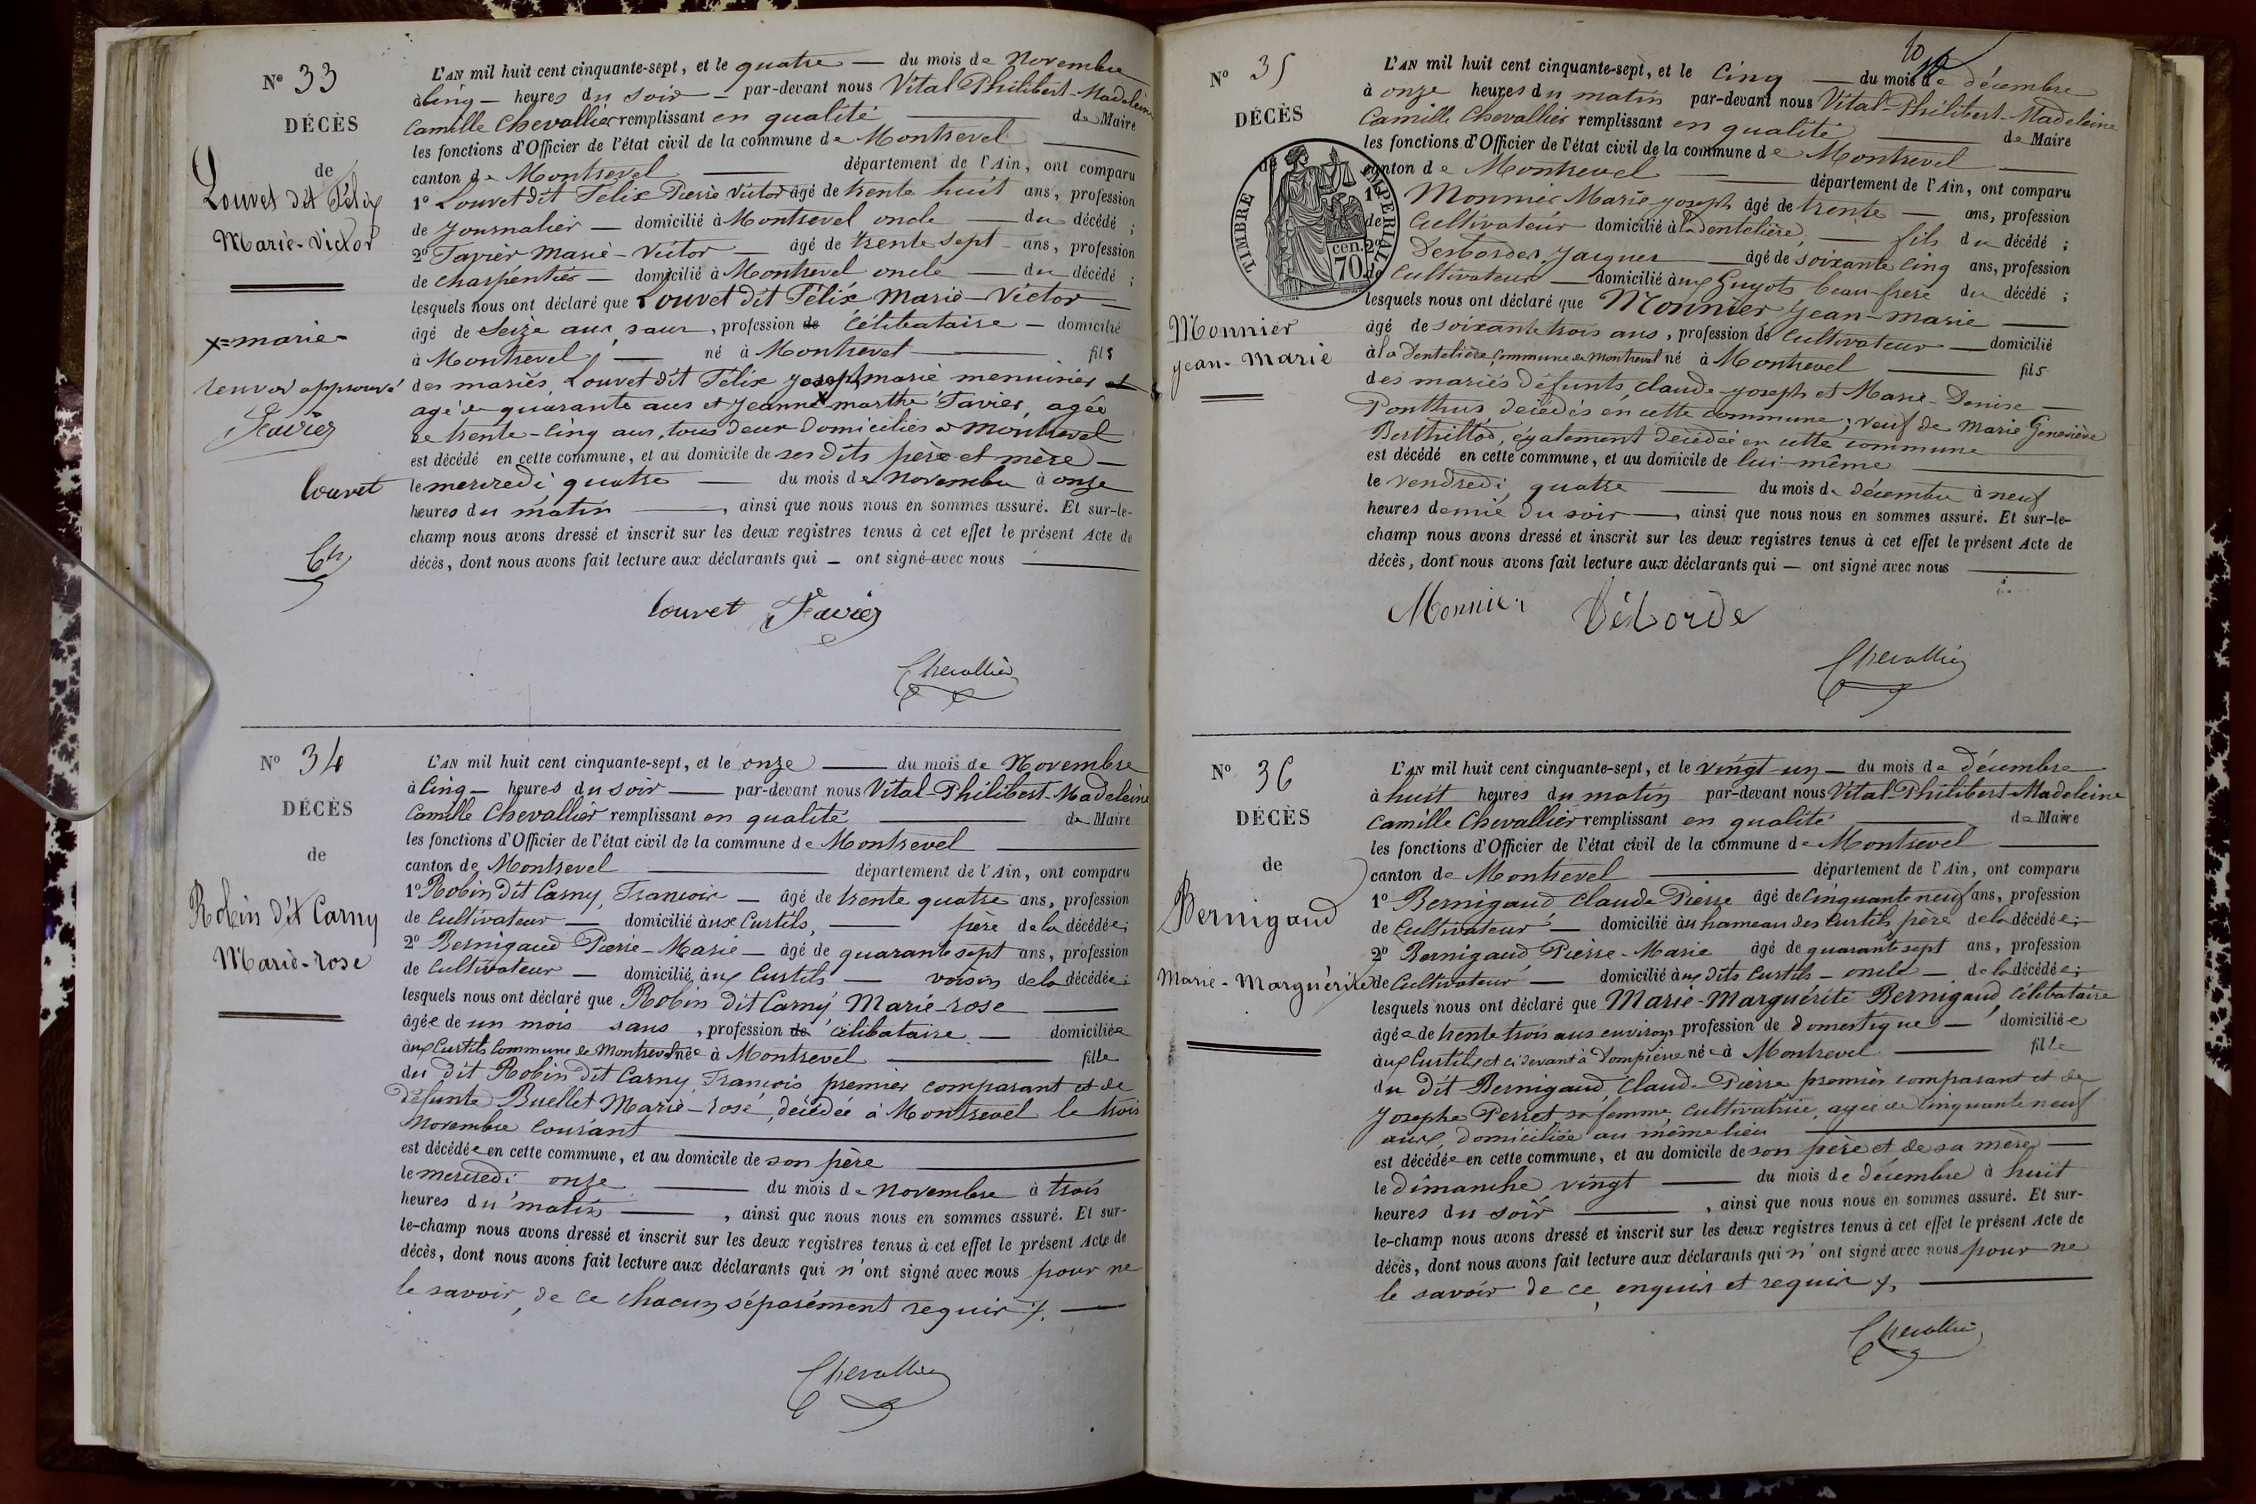 Nº 33
DÉCÈS
de
Louvet dit Félix
Marie-Victor
x = marie =
renvoi approuvé
Favier
Louvet
Ch
L'AN mil huit cent cinquante-sept, et le quatre — du mois de Novembre
à cinq — heures du soir — par-devant nous Vital Philibert-Madeleine
Camille Chevallier remplissant en qualité — de Maire
les fonctions d'Officier de l'état civil de la commune de Montrevel —
canton de Montrevel — département de l'Ain, ont comparu
1º Louvet dit Félix Pierre Victor âgé de trente huit ans, profession
de Journalier — domicilié à Montrevel oncle — du décédé ;
2º Favier Marie-Victor — âgé de trente sept — ans, profession
de charpentier — domicilié à Montrevel oncle — du décédé ;
lesquels nous ont déclaré que Louvet dit Félix Marie-Victor —
âgé de seize ans, sans, profession de célibataire — domicilié
à Montrevel — né à Montrevel — fils
des mariés Louvet dit Félix Joseph marie menuisier et
agé de quarante ans et Jeanne x marthe Favier, agée
de trente-cinq ans, tous deux domiciliés à Montrevel
est décédé en cette commune, et au domicile de ses dits père et mère —
le mercredi quatre — du mois de Novembre à onze
heures du matin —, ainsi que nous nous en sommes assuré. Et sur-le-
champ nous avons dressé et inscrit sur les deux registres tenus à cet effet le présent Acte de
décès, dont nous avons fait lecture aux déclarants qui — ont signé avec nous —
Louvet Favier
Chevallier
Nº 34
DÉCÈS
de
Robin dit Carny
Marie-rose
L'AN mil huit cent cinquante-sept, et le onze — du mois de Novembre
à cinq — heures du soir — par-devant nous Vital-Philibert-Madeleine
Camille Chevallier remplissant en qualité — de Maire
les fonctions d'Officier de l'état civil de la commune de Montrevel —
canton de Montrevel — département de l'Ain, ont comparu
1º Robin dit Carny, François — âgé de trente quatre ans, profession
de Cultivateur — domicilié aux Curtils, — père de la décédée ;
2º Bernigaud Pierre-Marie — âgé de quarante sept ans, profession
de Cultivateur — domicilié aux Curtils — voisin de la décédée ;
lesquels nous ont déclaré que Robin dit Carny Marie-rose —
âgée de un mois sans, profession de célibataire — domiciliée
aux Curtils Commune de Montrevel née à Montrevel — fille
du dit Robin dit Carny, François premier comparant et de
défunte Buellet Marie-rose, décédée à Montrevel le trois
Novembre courant —
est décédée en cette commune, et au domicile de son père —
le mercredi onze — du mois de Novembre à trois
heures du matin —, ainsi que nous nous en sommes assuré. Et sur-
le-champ nous avons dressé et inscrit sur les deux registres tenus à cet effet le présent Acte de
décès, dont nous avons fait lecture aux déclarants qui n'ont signé avec nous pour ne
le savoir, de ce chacun séparément requis ./. —
Chevallier
10
Nº 35
DÉCÈS
de
TIMBRE IMPERIAL
70 cen.
Monnier
Jean-Marie
L'AN mil huit cent cinquante-sept, et le cinq — du mois de décembre
à onze heures du matin par-devant nous Vital-Philibert-Madeleine
Camille Chevallier remplissant en qualité — de Maire
les fonctions d'Officier de l'état civil de la commune de Montrevel —
canton de Montrevel — département de l'Ain, ont comparu
1º Monnier Marie-Joseph âgé de trente — ans, profession
de Cultivateur domicilié à la Dentelière — fils du décédé ;
2º Desbordes, Jacques — âgé de soixante cinq ans, profession
de Cultivateur — domicilié aux Guyots beau-frère du décédé ;
lesquels nous ont déclaré que Monnier Jean-marie —
âgé de soixante trois ans, profession de Cultivateur — domicilié
à la Dentelière, Commune de Montrevel né à Montrevel — fils
des mariés défunts, Claude-Joseph et Marie-Denise —
Ponthus décédés en cette commune ; veuf de Marie Geneviève
Berthillod, également décédée en cette commune
est décédé en cette commune, et au domicile de lui-même —
le vendredi quatre — du mois de décembre à neuf
heures demie du soir —, ainsi que nous nous en sommes assuré. Et sur-le-
champ nous avons dressé et inscrit sur les deux registres tenus à cet effet le présent Acte de
décès, dont nous avons fait lecture aux déclarants qui — ont signé avec nous —
Monnier Déborde
Chevallier
Nº 36
DÉCÈS
de
Bernigaud
Marie-Marguérite
L'AN mil huit cent cinquante-sept, et le vingt-un — du mois de décembre
à huit heures du matin par-devant nous Vital-Philibert-Madeleine
Camille Chevallier remplissant en qualité — de Maire
les fonctions d'Officier de l'état civil de la commune de Montrevel —
canton de Montrevel — département de l'Ain, ont comparu
1º Bernigaud Claude Pierre âgé de cinquante neuf ans, profession
de Cultivateur — domicilié au hameau des Curtils père de la décédée ;
2º Bernigaud Pierre-Marie âgé de quarante sept ans, profession
de Cultivateur — domicilié aux dits Curtils — oncle — de la décédée ;
lesquels nous ont déclaré que Marie-Marguérite Bernigaud, célibataire
âgée de trente trois ans environ profession de domestique — domiciliée
aux Curtils et ci devant à Dompierre née à Montrevel — fille
du dit Bernigaud, Claude Pierre premier comparant et de
Josephe Perret sa femme, cultivatrice, agée de cinquante neuf
ans, domiciliée au même lieu —
est décédée en cette commune, et au domicile de son père et de sa mère —
le dimanche vingt — du mois de décembre à huit
heures du soir —, ainsi que nous nous en sommes assuré. Et sur-
le-champ nous avons dressé et inscrit sur les deux registres tenus à cet effet le présent Acte de
décès, dont nous avons fait lecture aux déclarants qui n'ont signé avec nous pour ne
le savoir de ce, enquis et requis ./. —
Chevallier